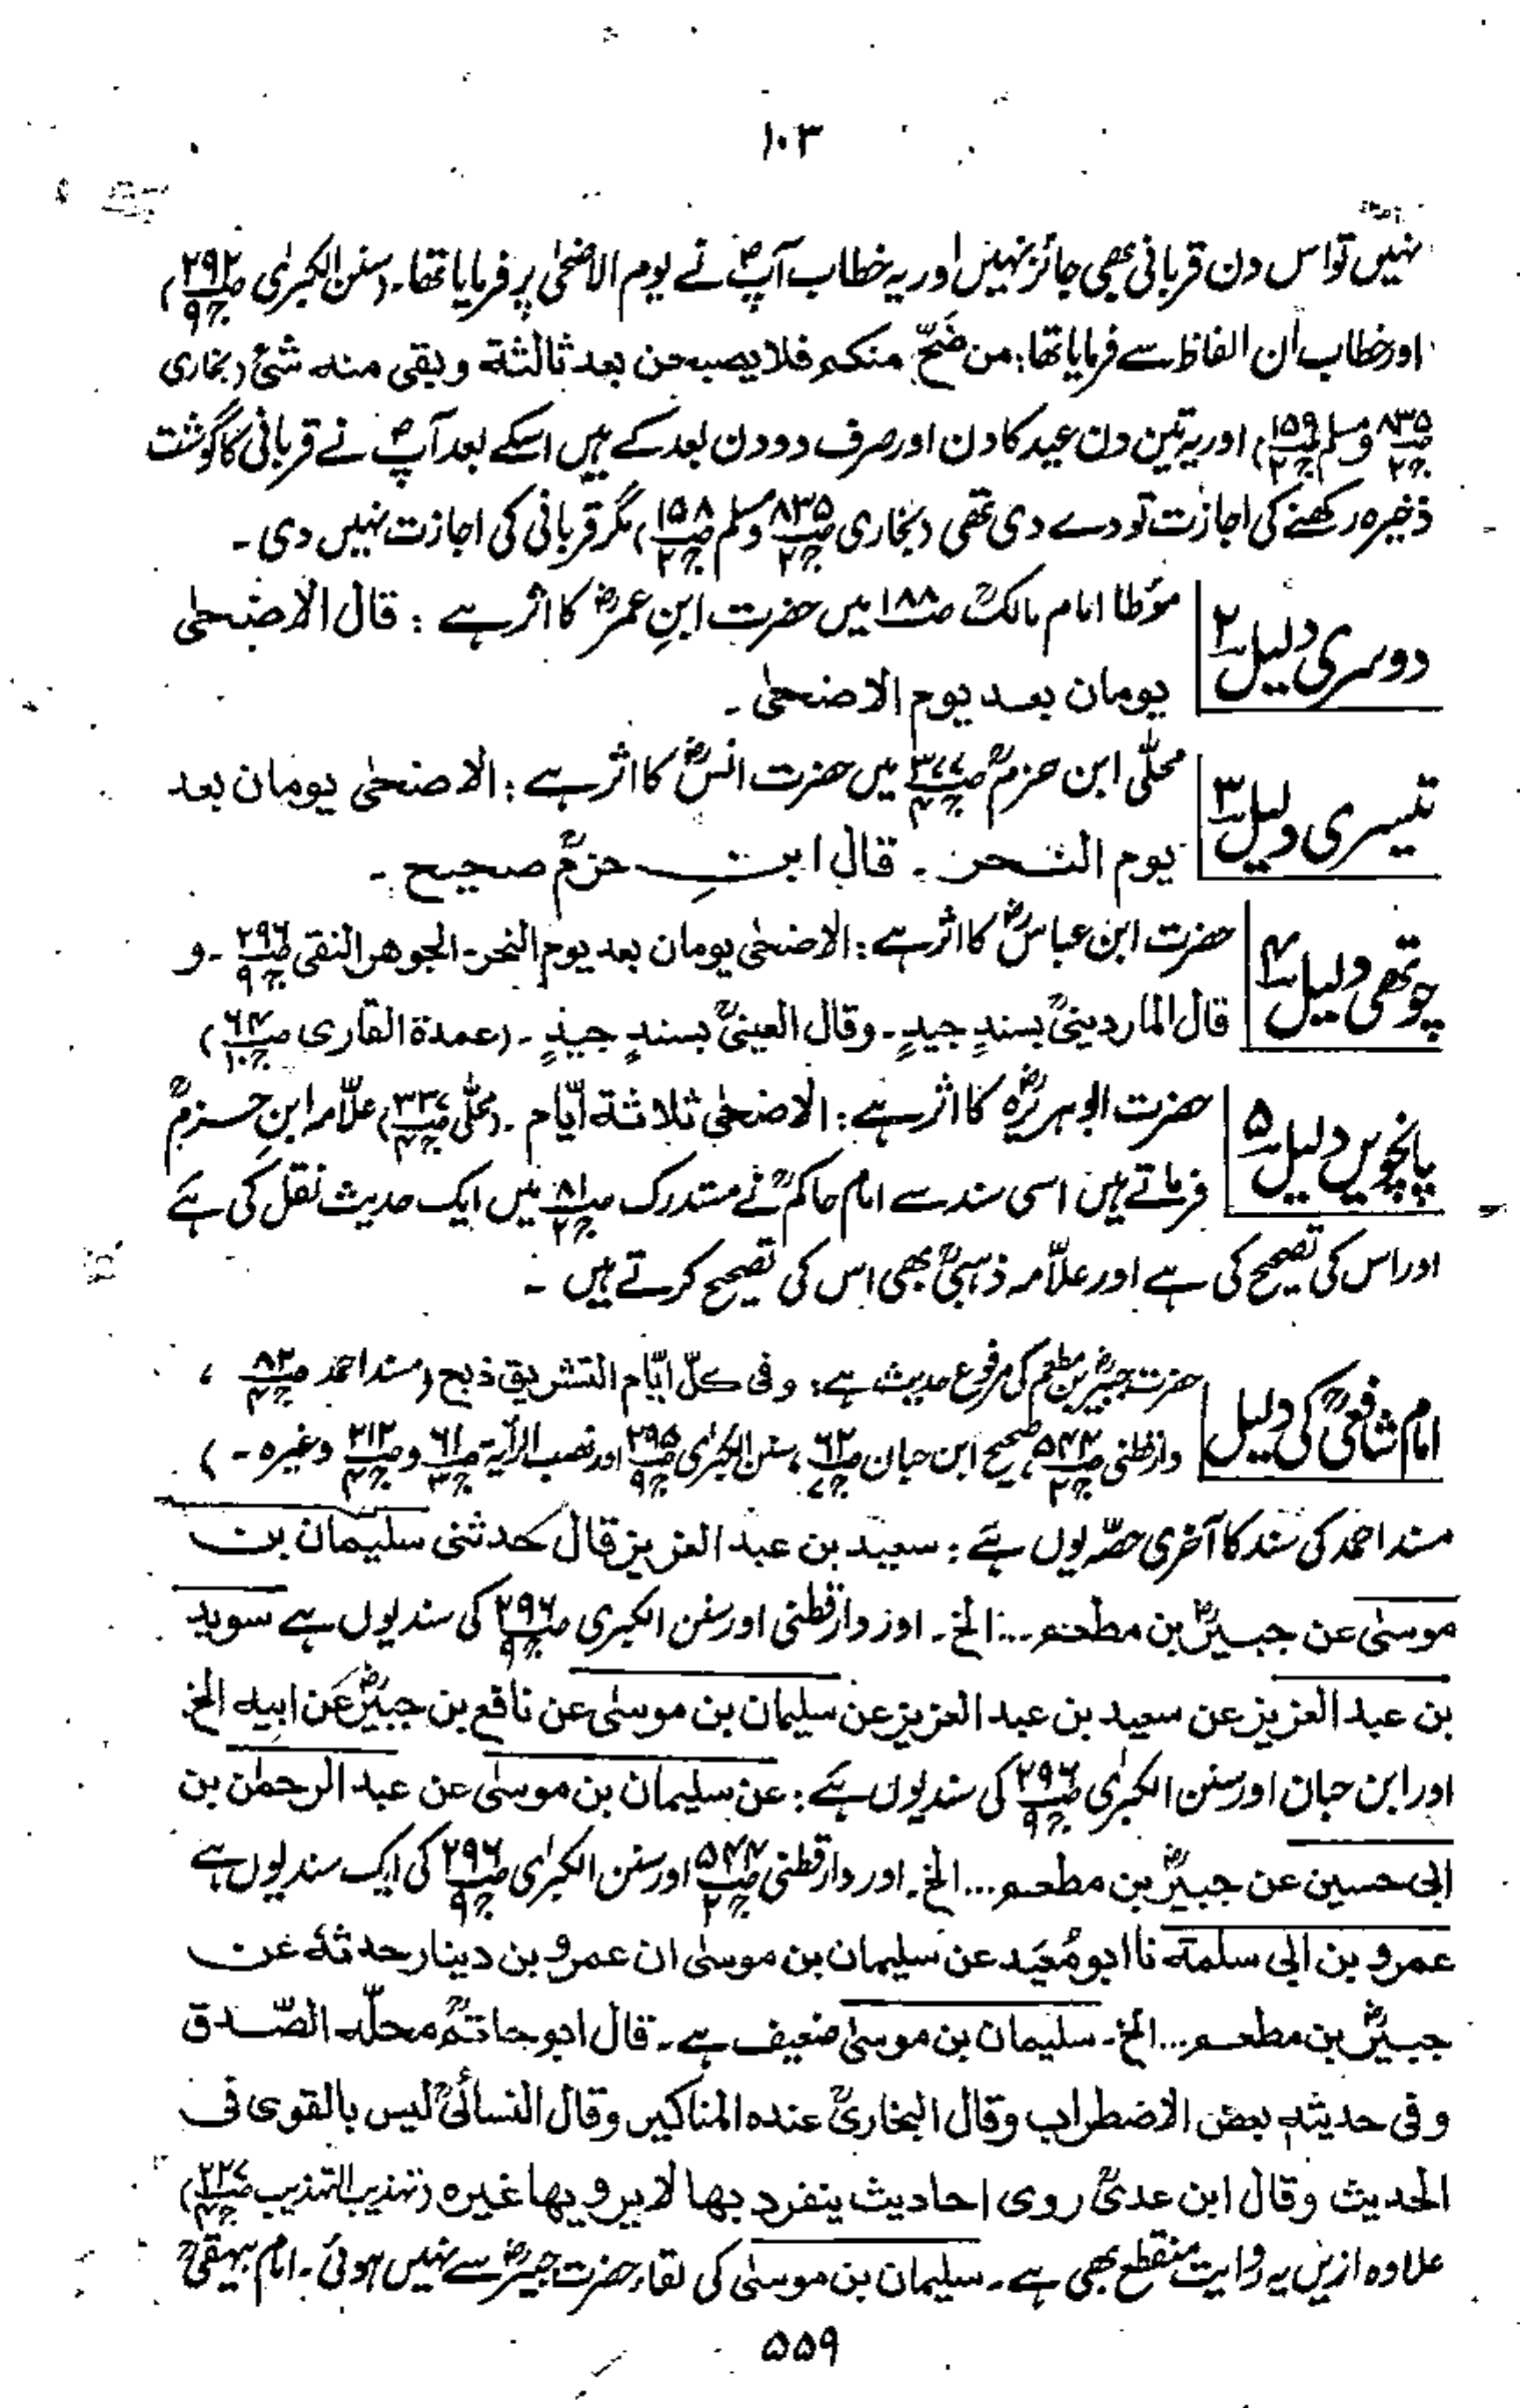 ۱۰۳
نہیں تو اس دن قربانی بھی جائز نہیں اور یہ خطاب آپؐ نے یوم الاضحیٰ پر فرمایا تھا۔ (سنن الکبریٰ ص۲۹۲ ج۹)
اور خطاب ان الفاظ سے فرمایا تھا: من ضَحّٰ منکم فلا یصبحن بعد ثالثة و بقی منه شئ (بخاری
ص۸۳۵ ج۲ و مسلم ص۱۵۹ ج۲) اور یہ تین دن عید کا دن اور صرف دو دن بعد کے ہیں اسکے بعد آپؐ نے قربانی کا گوشت
ذخیرہ رکھنے کی اجازت تو دے دی تھی (بخاری ص۸۳۵ ج۲ و مسلم ص۱۵۸ ج۲) مگر قربانی کی اجازت نہیں دی۔
دوسری دلیل ۲ مؤطا امام مالکؒ ص۱۸۸ میں حضرت ابنِ عمرؓ کا اثر ہے : قال الاضحیٰ
یومان بعد یوم الاضحیٰ۔
تیسری دلیل ۳ محلّٰی ابن حزمؒ ص۳۷۷ ج۴ میں حضرت انسؓ کا اثر ہے : الاضحیٰ یومان بعد
یوم النحر۔ قال ابنِ حزمؒ صحیح۔
چوتھی دلیل ۴ حضرت ابن عباسؓ کا اثر ہے : الاضحیٰ یومان بعد یوم النحر۔ الجوھر النقی ص۲۹۶ ج۹۔ و
قال الماردینیؒ بسندٍ جیدٍ۔ وقال العینیؒ بسندٍ جیدٍ۔ (عمدة القاری ص۶۴ ج۱۰)
پانچویں دلیل ۵ حضرت ابوہریرہؓ کا اثر ہے : الاضحیٰ ثلاثة ایّام۔ (محلّٰی ص۳۳۷ ج۴) علّامہ ابنِ حزمؒ
فرماتے ہیں اسی سند سے امام حاکمؒ نے مستدرک ص۸۱ ج۲ میں ایک حدیث نقل کی ہے
اور اس کی تصحیح کی ہے اور علّامہ ذہبیؒ بھی اس کی تصحیح کرتے ہیں ۔
امام شافعیؒ کی دلیل حضرت جبیرؓ بن مطعم کی مرفوع حدیث ہے : وفی کلّ ایّام التشریق ذبح (مسند احمد ص۸۲ ج۴ ،
دارقطنی ص۵۴۴ ج۲، صحیح ابن حبان ص۶۲ ج۷، سنن الکبریٰ ص۲۹۵ ج۹ اور نصب الرآیة ص۶۱ ج۳ و ص۲۱۲ ج۴ وغیرہ۔)
مسند احمد کی سند کا آخری حصّہ یوں ہے : سعید بن عبد العزیز قال حدثنی سلیمان بن
موسیٰ عن جبیرؓ بن مطعم...الخ۔ اور دارقطنی اور سنن الکبریٰ ص۲۹۶ ج۹ کی سند یوں ہے سوید
بن عبد العزیز عن سعید بن عبد العزیز عن سلیمان بن موسیٰ عن نافع بن جبیرؓ عن ابیه الخ
اور ابن حبان اور سنن الکبریٰ ص۲۹۶ ج۹ کی سند یوں ہے : عن سلیمان بن موسیٰ عن عبد الرحمٰن بن
ابی حسین عن جبیرؓ بن مطعم...الخ۔ اور دارقطنی ص۵۴۴ ج۲ اور سنن الکبریٰ ص۲۹۶ ج۹ کی ایک سند یوں ہے
عمرو بن ابی سلمة نا ابو مُعَید عن سلیمان بن موسیٰ ان عمرو بن دینار حدثهٗ عن
جبیرؓ بن مطعم...الخ۔ سلیمان بن موسیٰ ضعیف ہے۔ قال ابو حاتمؒ محلّه الصّدق
وفی حدیثه بعض الاضطراب وقال البخاریؒ عنده المناکیر وقال النسائیؒ لیس بالقوی فی
الحدیث وقال ابن عدیؒ روی احادیث ینفرد بها لا یرویها غیره (تہذیب التہذیب ص۲۲۷ ج۴)
علاوہ ازیں یہ روایت منقطع بھی ہے۔ سلیمان بن موسیٰ کی لقاء حضرت جبیرؓ سے نہیں ہوئی۔ امام بیہقیؒ
۵۵۹